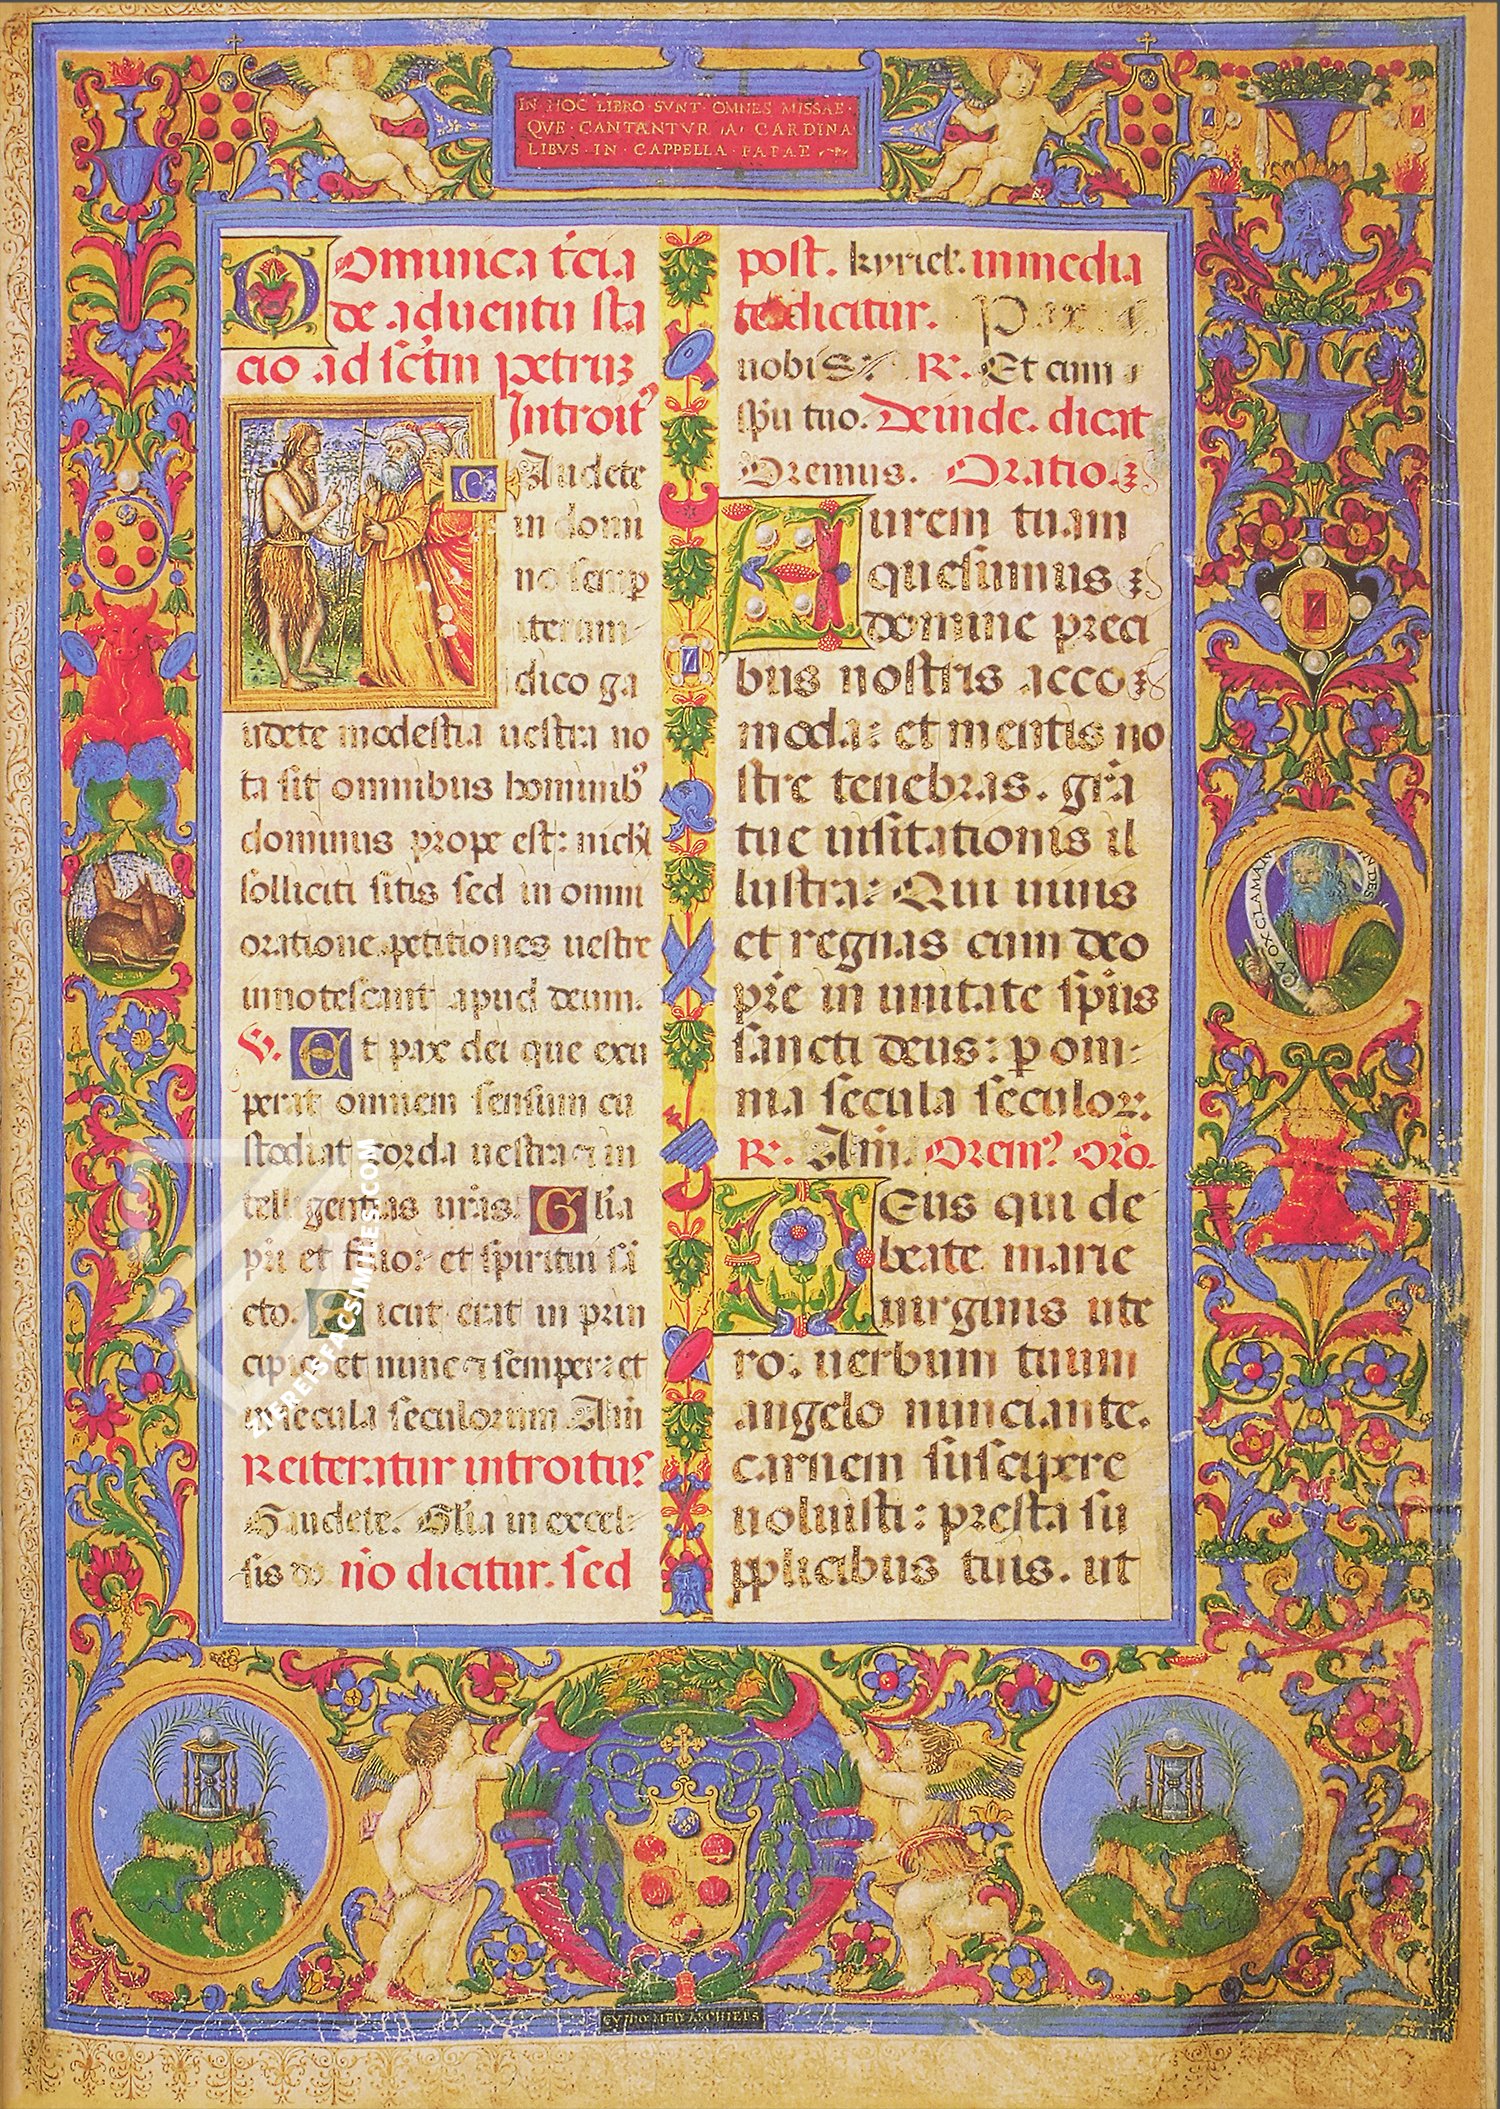 IN HOC LIBRO·SVNT·OMNES MISSAE·
QVE·CANTANTVR ·A· CARDINA
LIBVS·IN·CAPPELLA·PAPAE
Dominica t̄cia
de aduentu sta
cio ad sc̄tm petruʒ
Introitꝰ
Gaudete
in domi
no semp
iterum
dico ga
udete modestia uestra no
ta sit omnibus hominibꝰ
dominus prope est: nichil
solliciti sitis sed in omni
oratione petitiones uestre
innotescant apud deum.
V. Et pax dei que exu
perat omnem sensum cu
stodiat corda uestra et in
telligentias ur̄as. Gl̄ia
pr̄i et filio: et spiritui sā
cto. Sicut erat in prin
cipio et nunc et semper: et
in secula seculorum Am̄
Reiteratur introitus
Gaudete. Gl̄ia in excel
sis do nō dicitur. sed
post. kyriel. inmedia
te dicitur. Pax
nobis: R. Et cum
sp̄u tuo. Deinde. dicat
Oremus. Oratio
Aurem tuam
quesumus
domine preci
bus nostris acco
moda: et mentis no
stre tenebras. gr̄a
tue uisitationis il
lustra: Qui uiuis
et regnas cum deo
pr̄e in unitate sp̄us
sancti deus: p om
nia secula seculoꝝ.
R. Am̄. Oremꝰ Orō.
Deus qui de
beate marie
uirginis ute
ro: uerbum tuum
angelo nunciante.
carnem suscipere
uoluisti: presta su
pplicibus tuis. ut
VOX CLAMAN
ZIEREISFACSIMILES.COM